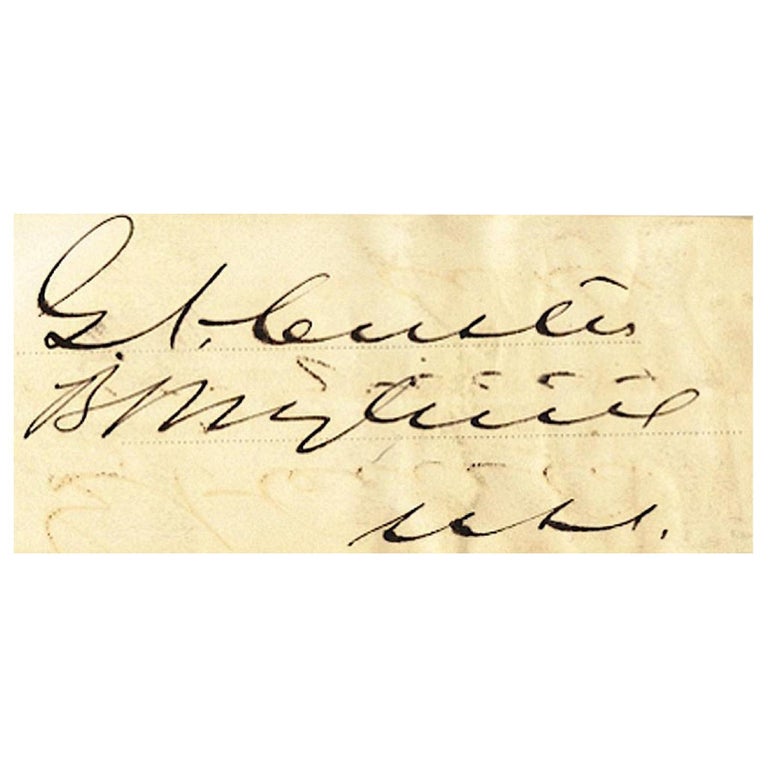 G. A. Custer
B. Maj Genl
U.S.A.